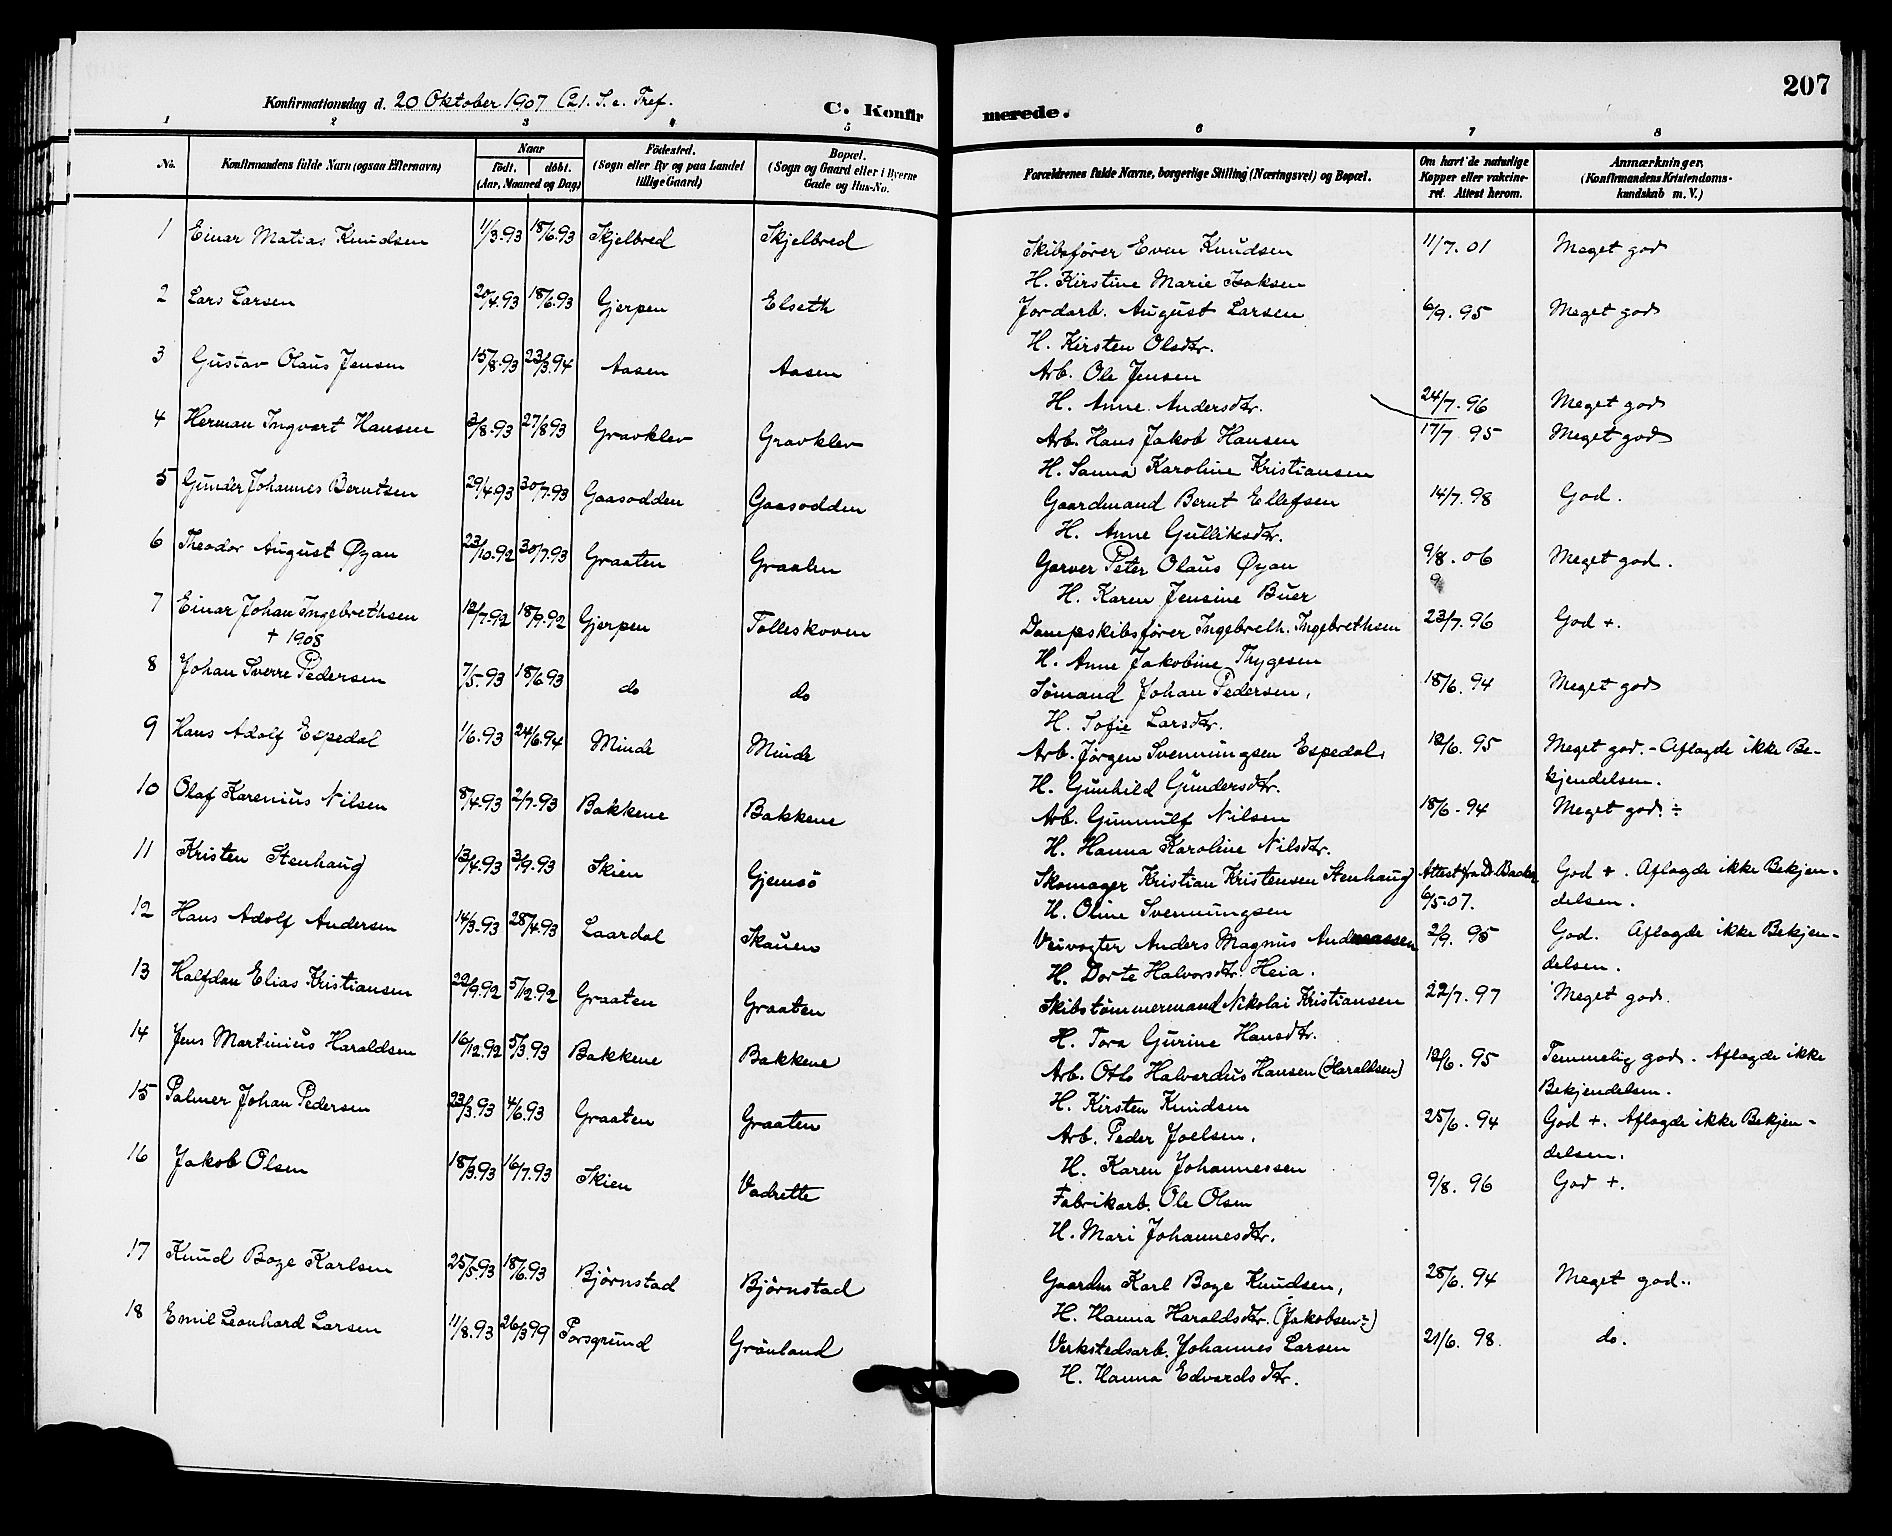 207
Konfirmationsdag d. 20 Oktober 1907 (21. S. e. Tref.
C. Konfirmerede.
1 2 3 4 5 6 7 8
No. Konfirmandens fulde Navn (ogsaa Efternavn) Naar født. døbt. (Aar, Maaned og Dag) Fødested. (Sogn eller By og paa Landet tillige Gaard) Bopæl. (Sogn og Gaard eller i Byerne Gade og Hus-No. Forældrenes fulde Navne, borgerlige Stilling (Næringsvei) og Bopæl. Om havt de naturlige Kopper eller vakcineret. Attest herom. Anmærkninger, (Konfirmandens Kristendomskundskab m. V.)
1 Einar Matias Knudsen 11/3.93 18/6.93 Skjelbred Skjelbred Skibsfører Even Knudsen 11/7.01 Meget god
H. Kirstine Marie Isaksen
2 Lars Larsen 20/4.93 18/6.93 Gjerpen Elseth Jordarb. August Larsen 6/9.95 Meget god
H. Kirsten Olsdtr.
3 Gustav Olaus Jensen 15/8.93 23/3.94 Aasen Aasen Arb. Ole Jensen
H. Anne Andersdtr. 24/7.96 Meget god
4 Herman Ingvart Hansen 3/8.93 27/8 93 Gravklev Gravklev Arb. Hans Jakob Hansen 17/7 95 Meget god
H. Sanna Karoline Kristiansen
5 Gunder Johannes Berntsen 29/4.93 30/7.93 Gaasodden Gaasodden Gaardmand Bernt Ellefsen 14/7.98 God.
H. Anne Gulliksdtr.
6 Theodor August Øyan 23/10.92 30/7.93 Graaten Graaten Garver Peter Olaus Øyan 9/8.06 Meget god.
H. Karen Jensine Buer 9
7 Einar Johan Ingebrethsen 12/7.92 18/9.92 Gjerpen Tolleskoven Dampskibsfører Ingebreth. Ingebrethsen 23/7.96 God +.
+ 1908 H. Anne Jakobine Thygesen
8 Johan Sverre Pedersen 7/5.93 18/6.93 do do Sømand Johan Pedersen, 18/6.94 Meget god
H. Sofie Larsdtr.
9 Hans Adolf Espedal 1/6.93 24/6.94 Minde Minde Arb. Jørgen Svennungsen Espedal. 12/6.95 Meget god. - Aflagde ikke Be-
H. Gunhild Gundersdtr. kjendelsen.
10 Olaf Karenius Nilsen 8/4.93 2/7.93 Bakkene Bakkene Arb. Gunnulf Nilsen 18/6.94 Meget god. ÷
H. Hanna Karoline Nilsdtr.
11 Kristen Stenhaug 13/4.93 3/9.93 Skien Gjemsö Skomager Kristian Kristensen Stenhaug Attest fra Dr. Backer God +. Aflagde ikke Bekjen-
H. Oline Svennungsen 6/5.07. delsen.
12 Hans Adolf Andersen 14/3.93 28/4.93 Laardal Skauen Veivogter Anders Magnus Andreassen 2/9.95 God. Aflagde ikke Bekjen-
H. Dorte Halvorsdtr. Heia. delsen.
13 Halfdan Elias Kristiansen 22/9.92 5/12.92 Graaten Graaten Skibstømmermand Nikolai Kristiansen 22/7.97 Meget god.
H. Tora Gurine Hansdtr.
14 Jens Martinius Haraldsen 16/12.92 5/3.93 Bakkene Bakkene Arb. Otto Halvardus Hansen (Haraldsen) 12/6.95 Temmelig god. Aflagde ikke
H. Kirsten Knudsen Bekjendelsen.
15 Palmer Johan Pedersen 23/3.93 4/6.93 Graaten Graaten Arb. Peder Joelsen. 25/6.94 God +. Aflagde ikke Bekjen-
H. Karen Johannessen delsen.
16 Jakob Olsen 18/3.93 16/7.93 Skien Vadrette Fabrikarb. Ole Olsen 9/8.96 God +.
H. Mari Johannesdtr.
17 Knud Boge Karlsen 25/5.93 18/6.93 Björnstad Björnstad Gaardm Karl Boge Knudsen, 28/6.94 Meget god.
H. Hanna Haraldsdtr. (Jakobsen ÷)
18 Emil Leonhard Larsen 11/8.93 26/3 99 Porsgrund Grönland Verkstedsarb. Johannes Larsen 21/6.98. do.
H. Hanna Edvardsdtr.